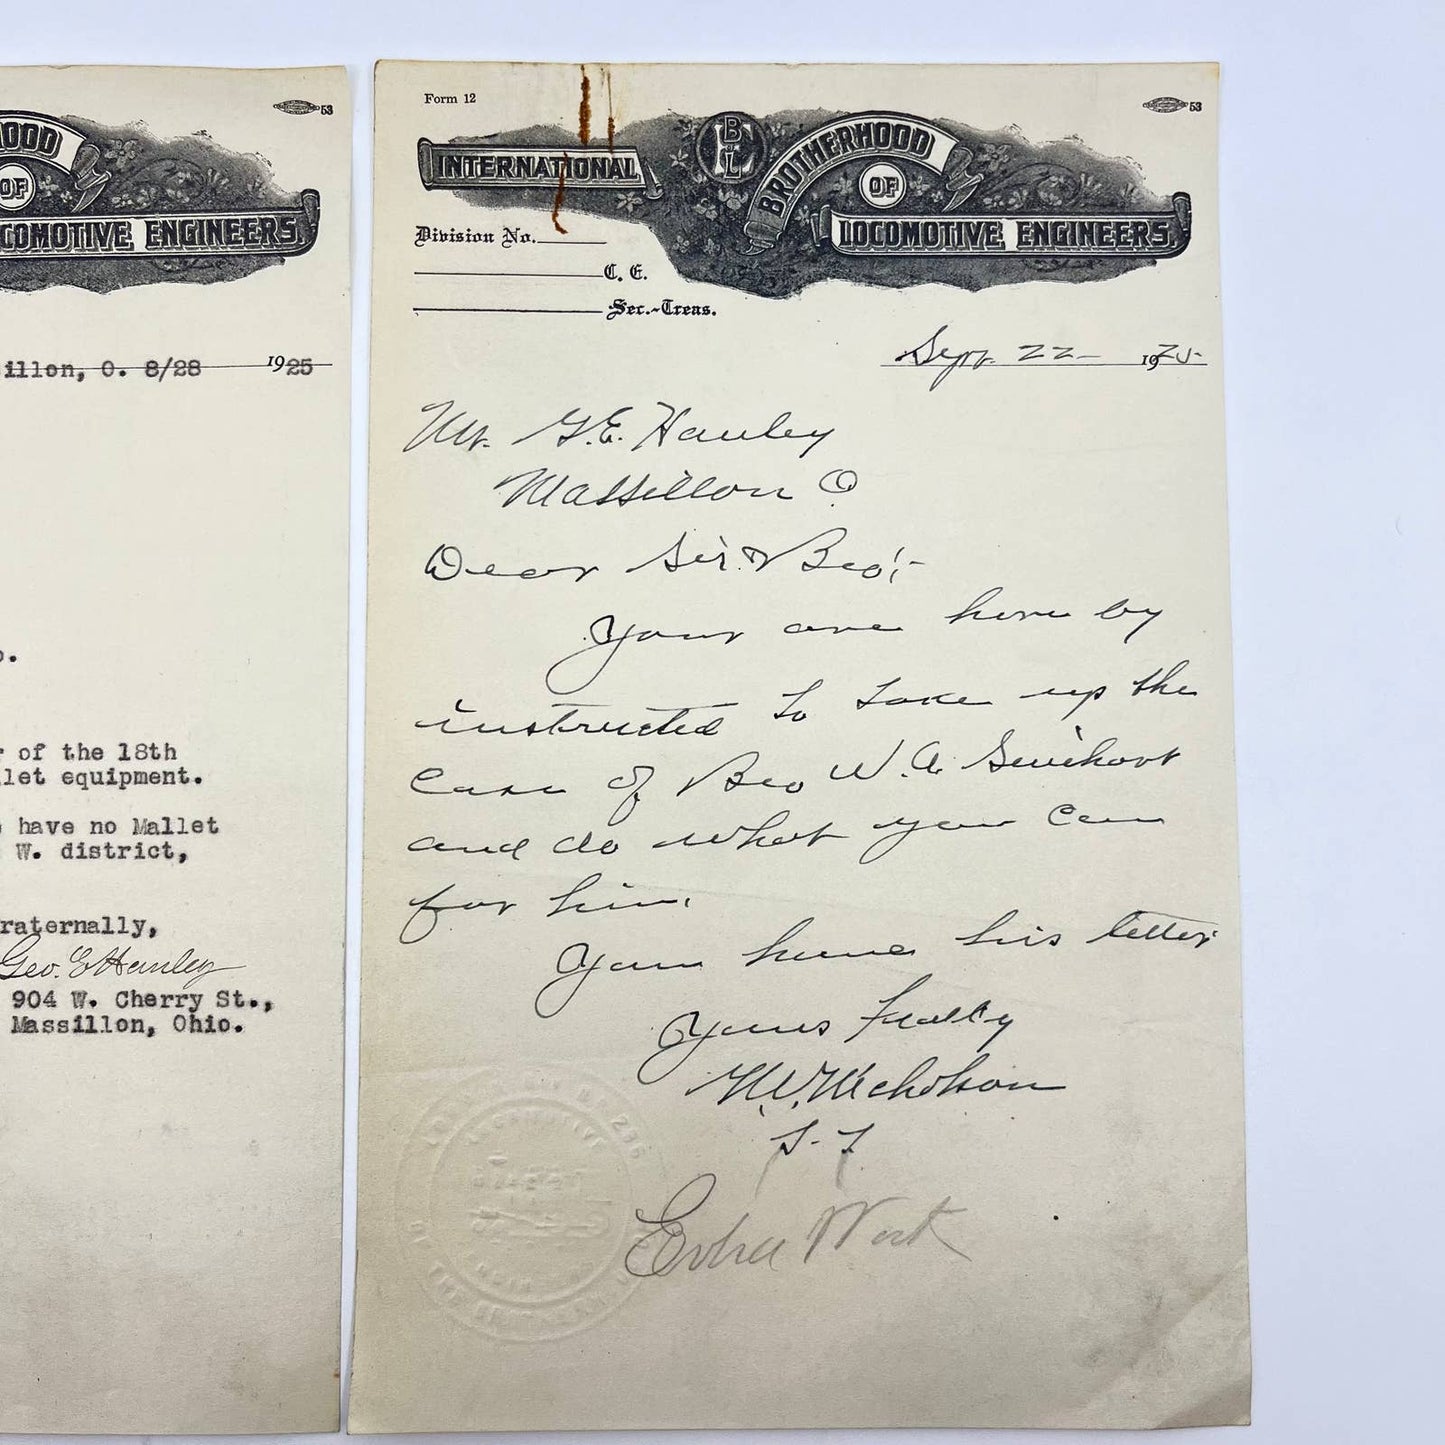 HOOD
OF
COMOTIVE ENGINEERS
53
illon, O. 8/28 1925
o.
r of the 18th
llet equipment.
e have no Mallet
W. district,
raternally,
Geo. E Hanley
904 W. Cherry St.,
Massillon, Ohio.
Form 12
53
INTERNATIONAL
B L E
BROTHERHOOD
OF
LOCOMOTIVE ENGINEERS
Division No.
C. E.
Sec.-Treas.
Sept. 22 - 1925-
Mr. G.E. Hanley
Massillon O
Dear Sir & Bro:-
Your are here by
instructed to take up the
Case of Bro W. A. Swihart
and do what you can
for him.
You have his letter
Yours Fratly
Nicholson
S-T
Extra Work